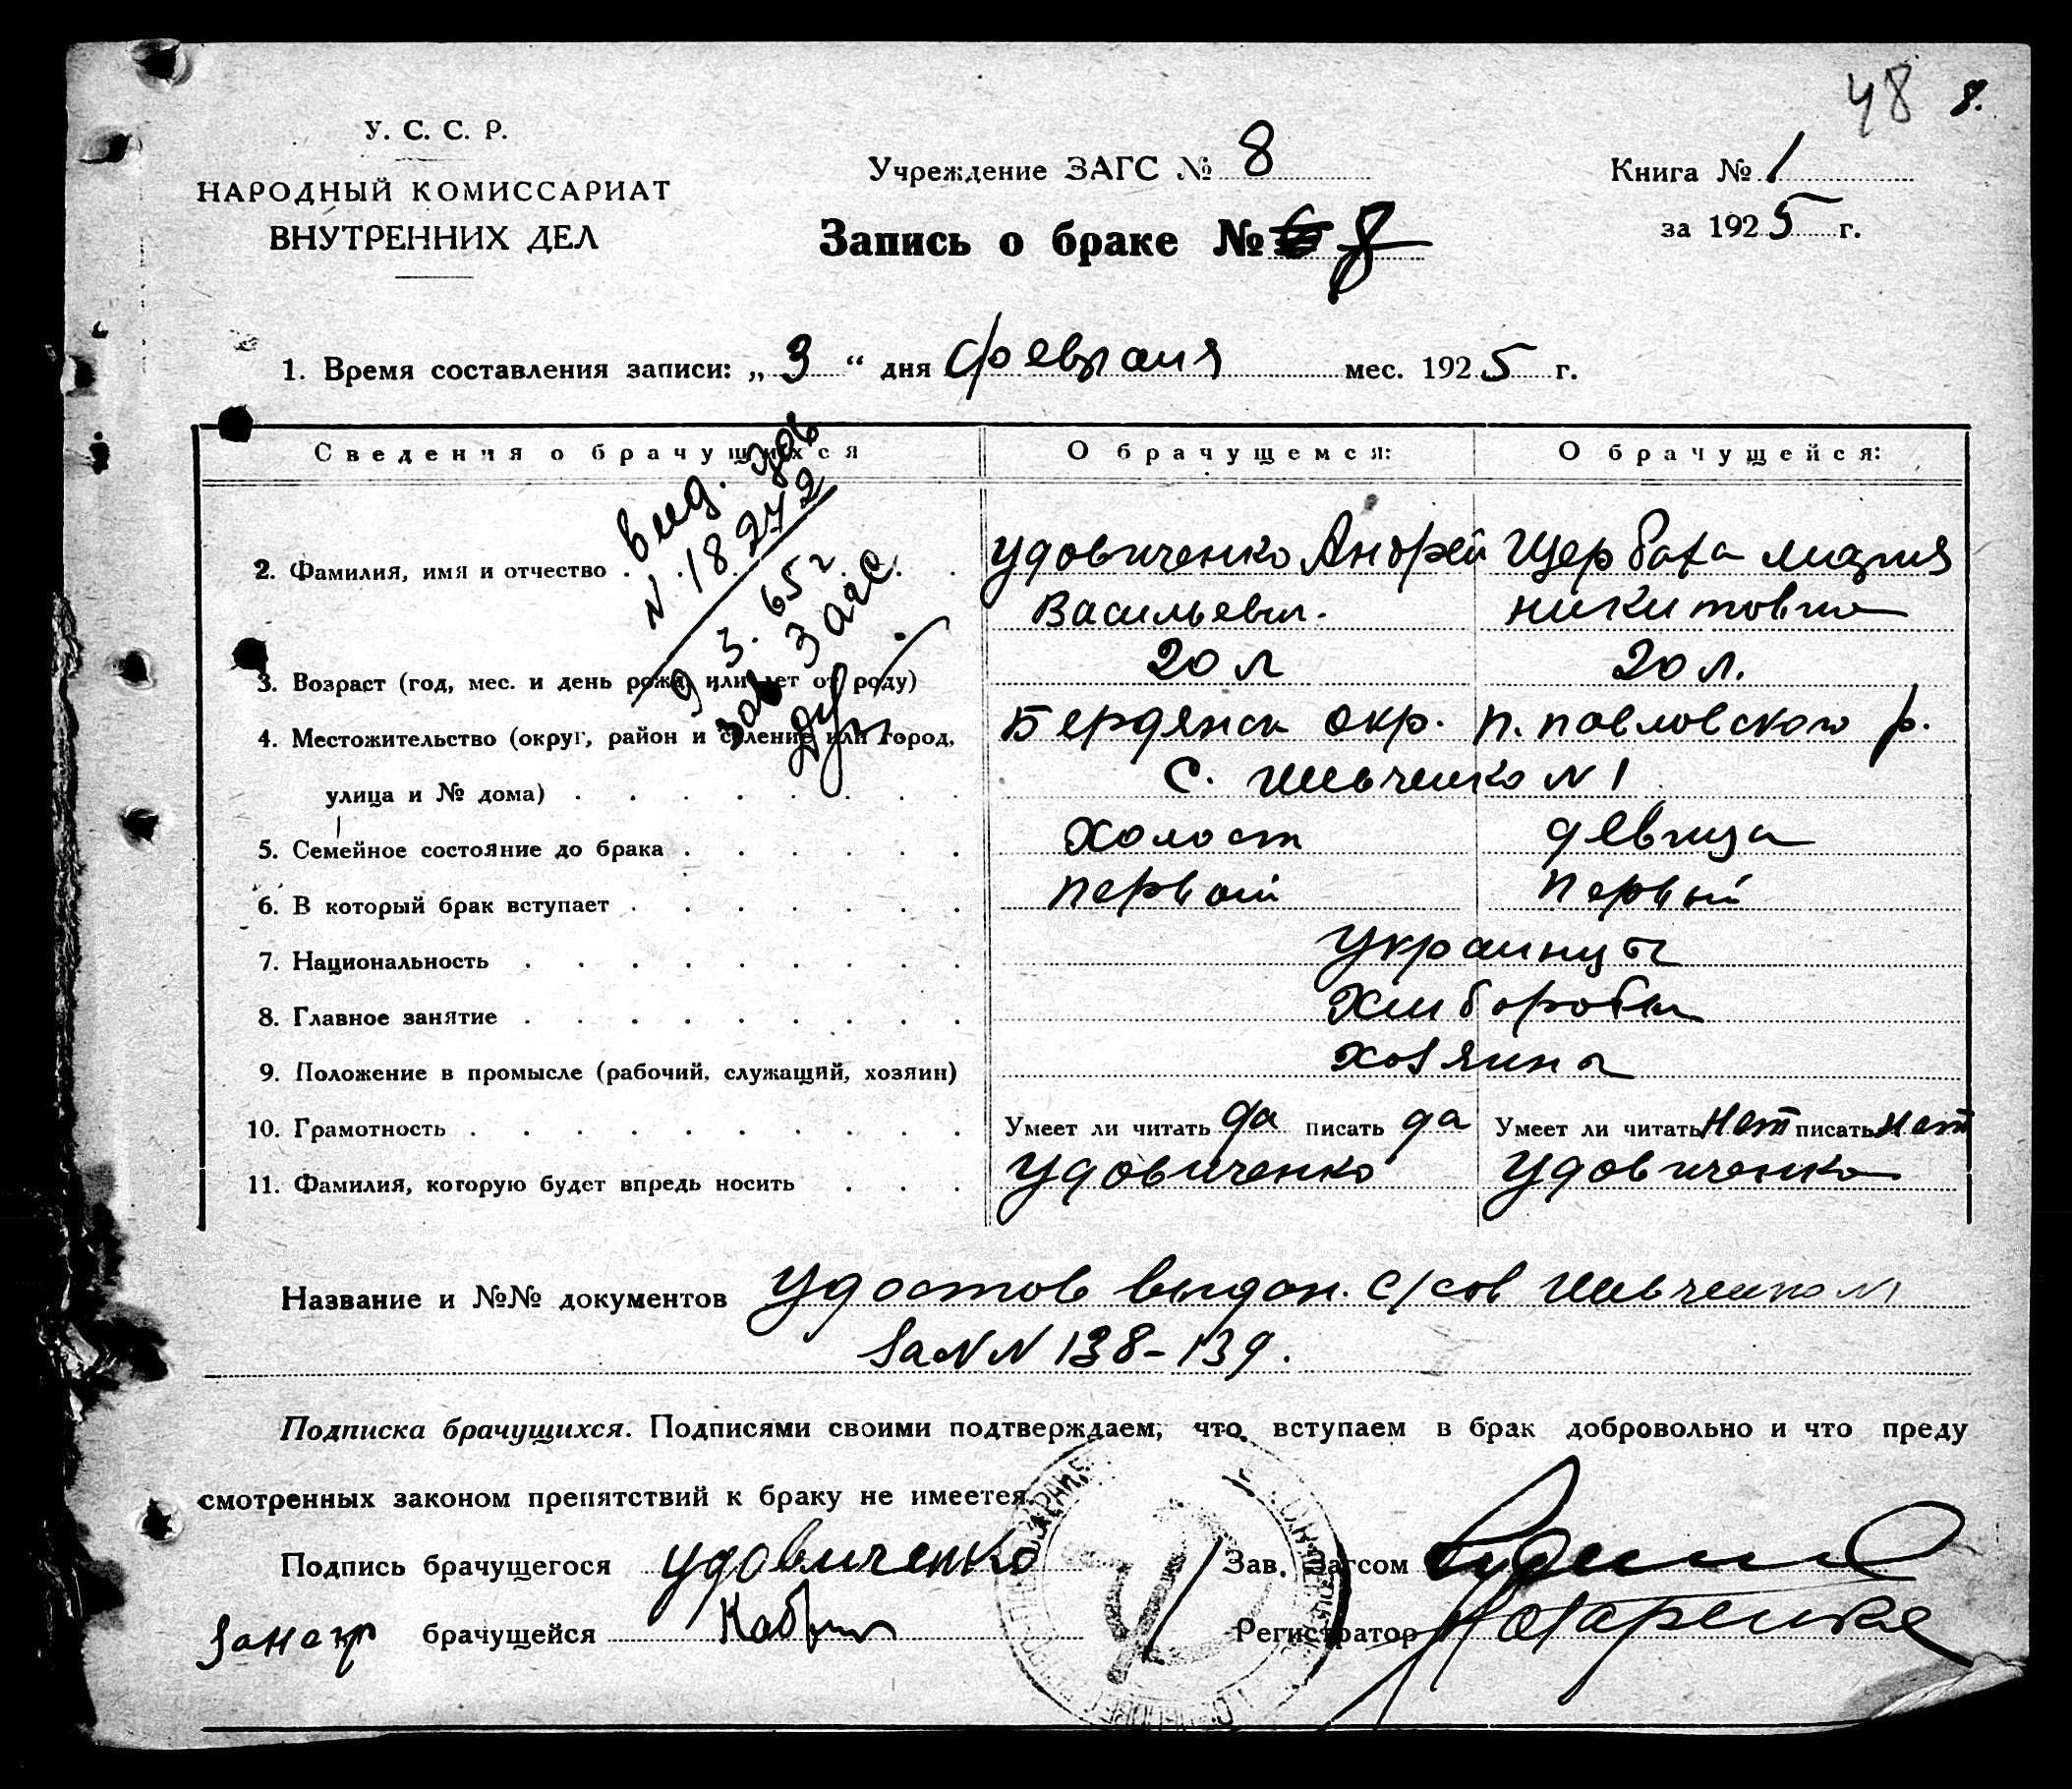 48 8.
У. С. С. Р.
НАРОДНЫЙ КОМИССАРИАТ
ВНУТРЕННИХ ДЕЛ
Учреждение ЗАГС № 8
Запись о браке № 8
Книга № 1
за 1925 г.
1. Время составления записи: „3“ дня февраля мес. 1925 г.
Сведения о брачущихся О брачущемся: О брачущейся:
N 18
9.3.65 г.
зав Загс
2. Фамилия, имя и отчество Удовиченко Андрей Щербата Мария
Васильевич. Никитовна
3. Возраст (год, мес. и день рожд. или лет от роду) 20 л 20 л.
4. Местожительство (округ, район и селение или город, Бердянск окр. П. павловского р.
улица и № дома) С. Шевченко N 1
5. Семейное состояние до брака холост девица
6. В который брак вступает первый первый
7. Национальность Украинцы
8. Главное занятие Хлиборобы
9. Положение в промысле (рабочий, служащий, хозяин) хозяина
10. Грамотность Умеет ли читать да писать да Умеет ли читать нет писать нет
11. Фамилия, которую будет впредь носить Удовиченко Удовиченко
Название и №№ документов Удостов выдан. с/сов Шевченко N 1
за NN 138-139.
Подписка брачущихся. Подписями своими подтверждаем, что вступаем в брак добровольно и что преду
смотренных законом препятствий к браку не имеется.
Подпись брачущегося Удовиченко Зав. Загсом
за негр брачущейся Регистратор